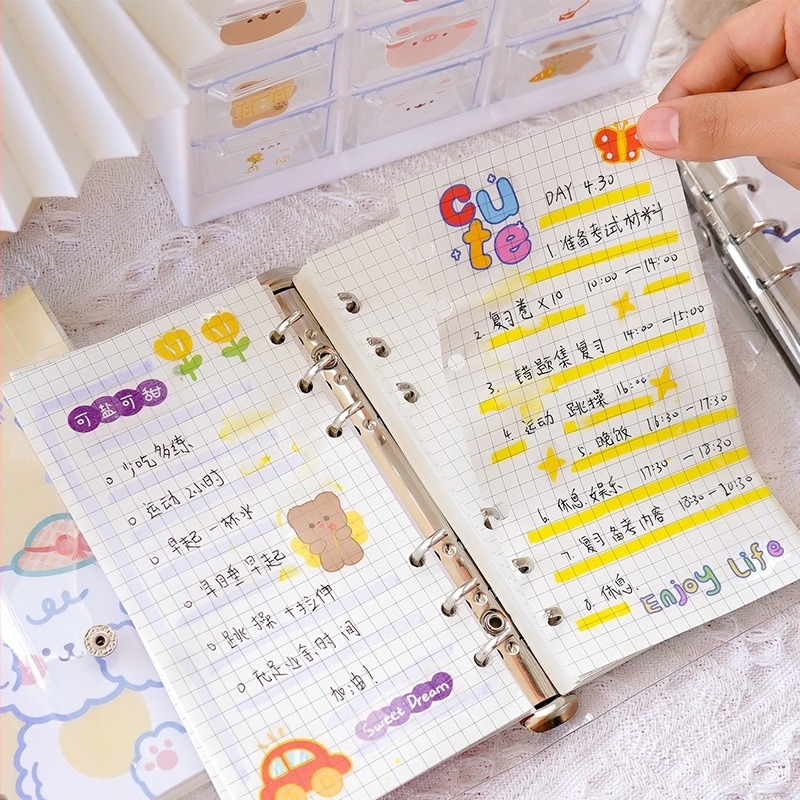 可盐可甜
少吃多练
运动 2小时
早起 一杯水
早月垂早起
跳操 +拉伸
充足业余时间
加油!
Sweet Dream
cute
DAY 4.30
1.准备考试材料
2.复习卷×10 10:00—14:00
3.错题集复习 14:00—15:00
4.运动 跳操 16:00
5.晚饭 16:30—17:30
6.休息.娱乐 17:30—18:30
7.复习备考内容 18:30—20:30
8.休息.
Enjoy Life